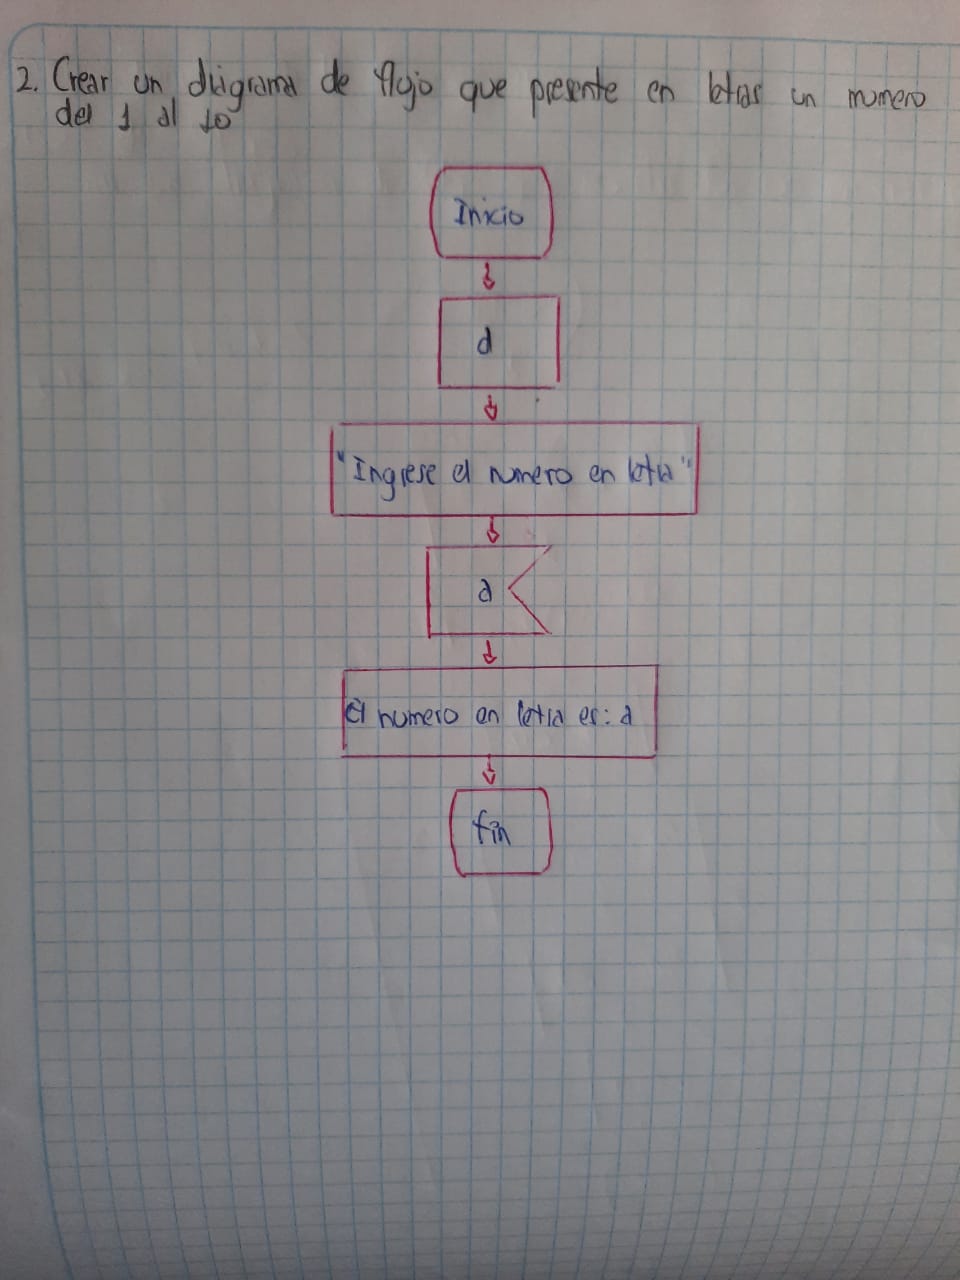 2. Crear un diigrama de flujo que presente en letras un numero
del 1 al 10
Inicio
a
"Ingrese el numero en letra"
a
El numero en letra es: a
fin